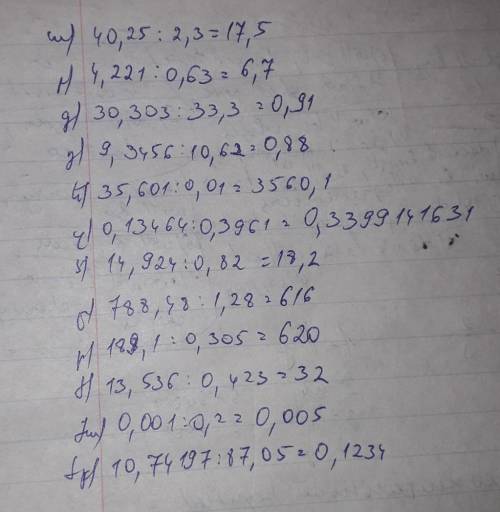 m) 40,25 : 2,3 = 17,5
г) 4,221 : 0,63 = 6,7
д) 30,303 : 33,3 = 0,91
д) 9,3456 : 10,62 = 0,88
35,601 : 0,01 = 3560,1
ч) 0,13464 : 0,3961 = 0,3399141631
з) 14,924 : 0,82 = 18,2
б) 788,48 : 1,28 = 616
189,1 : 0,305 = 620
13,536 : 0,423 = 32
0,001 : 0,2 = 0,005
10,74197 : 87,05 = 0,1234